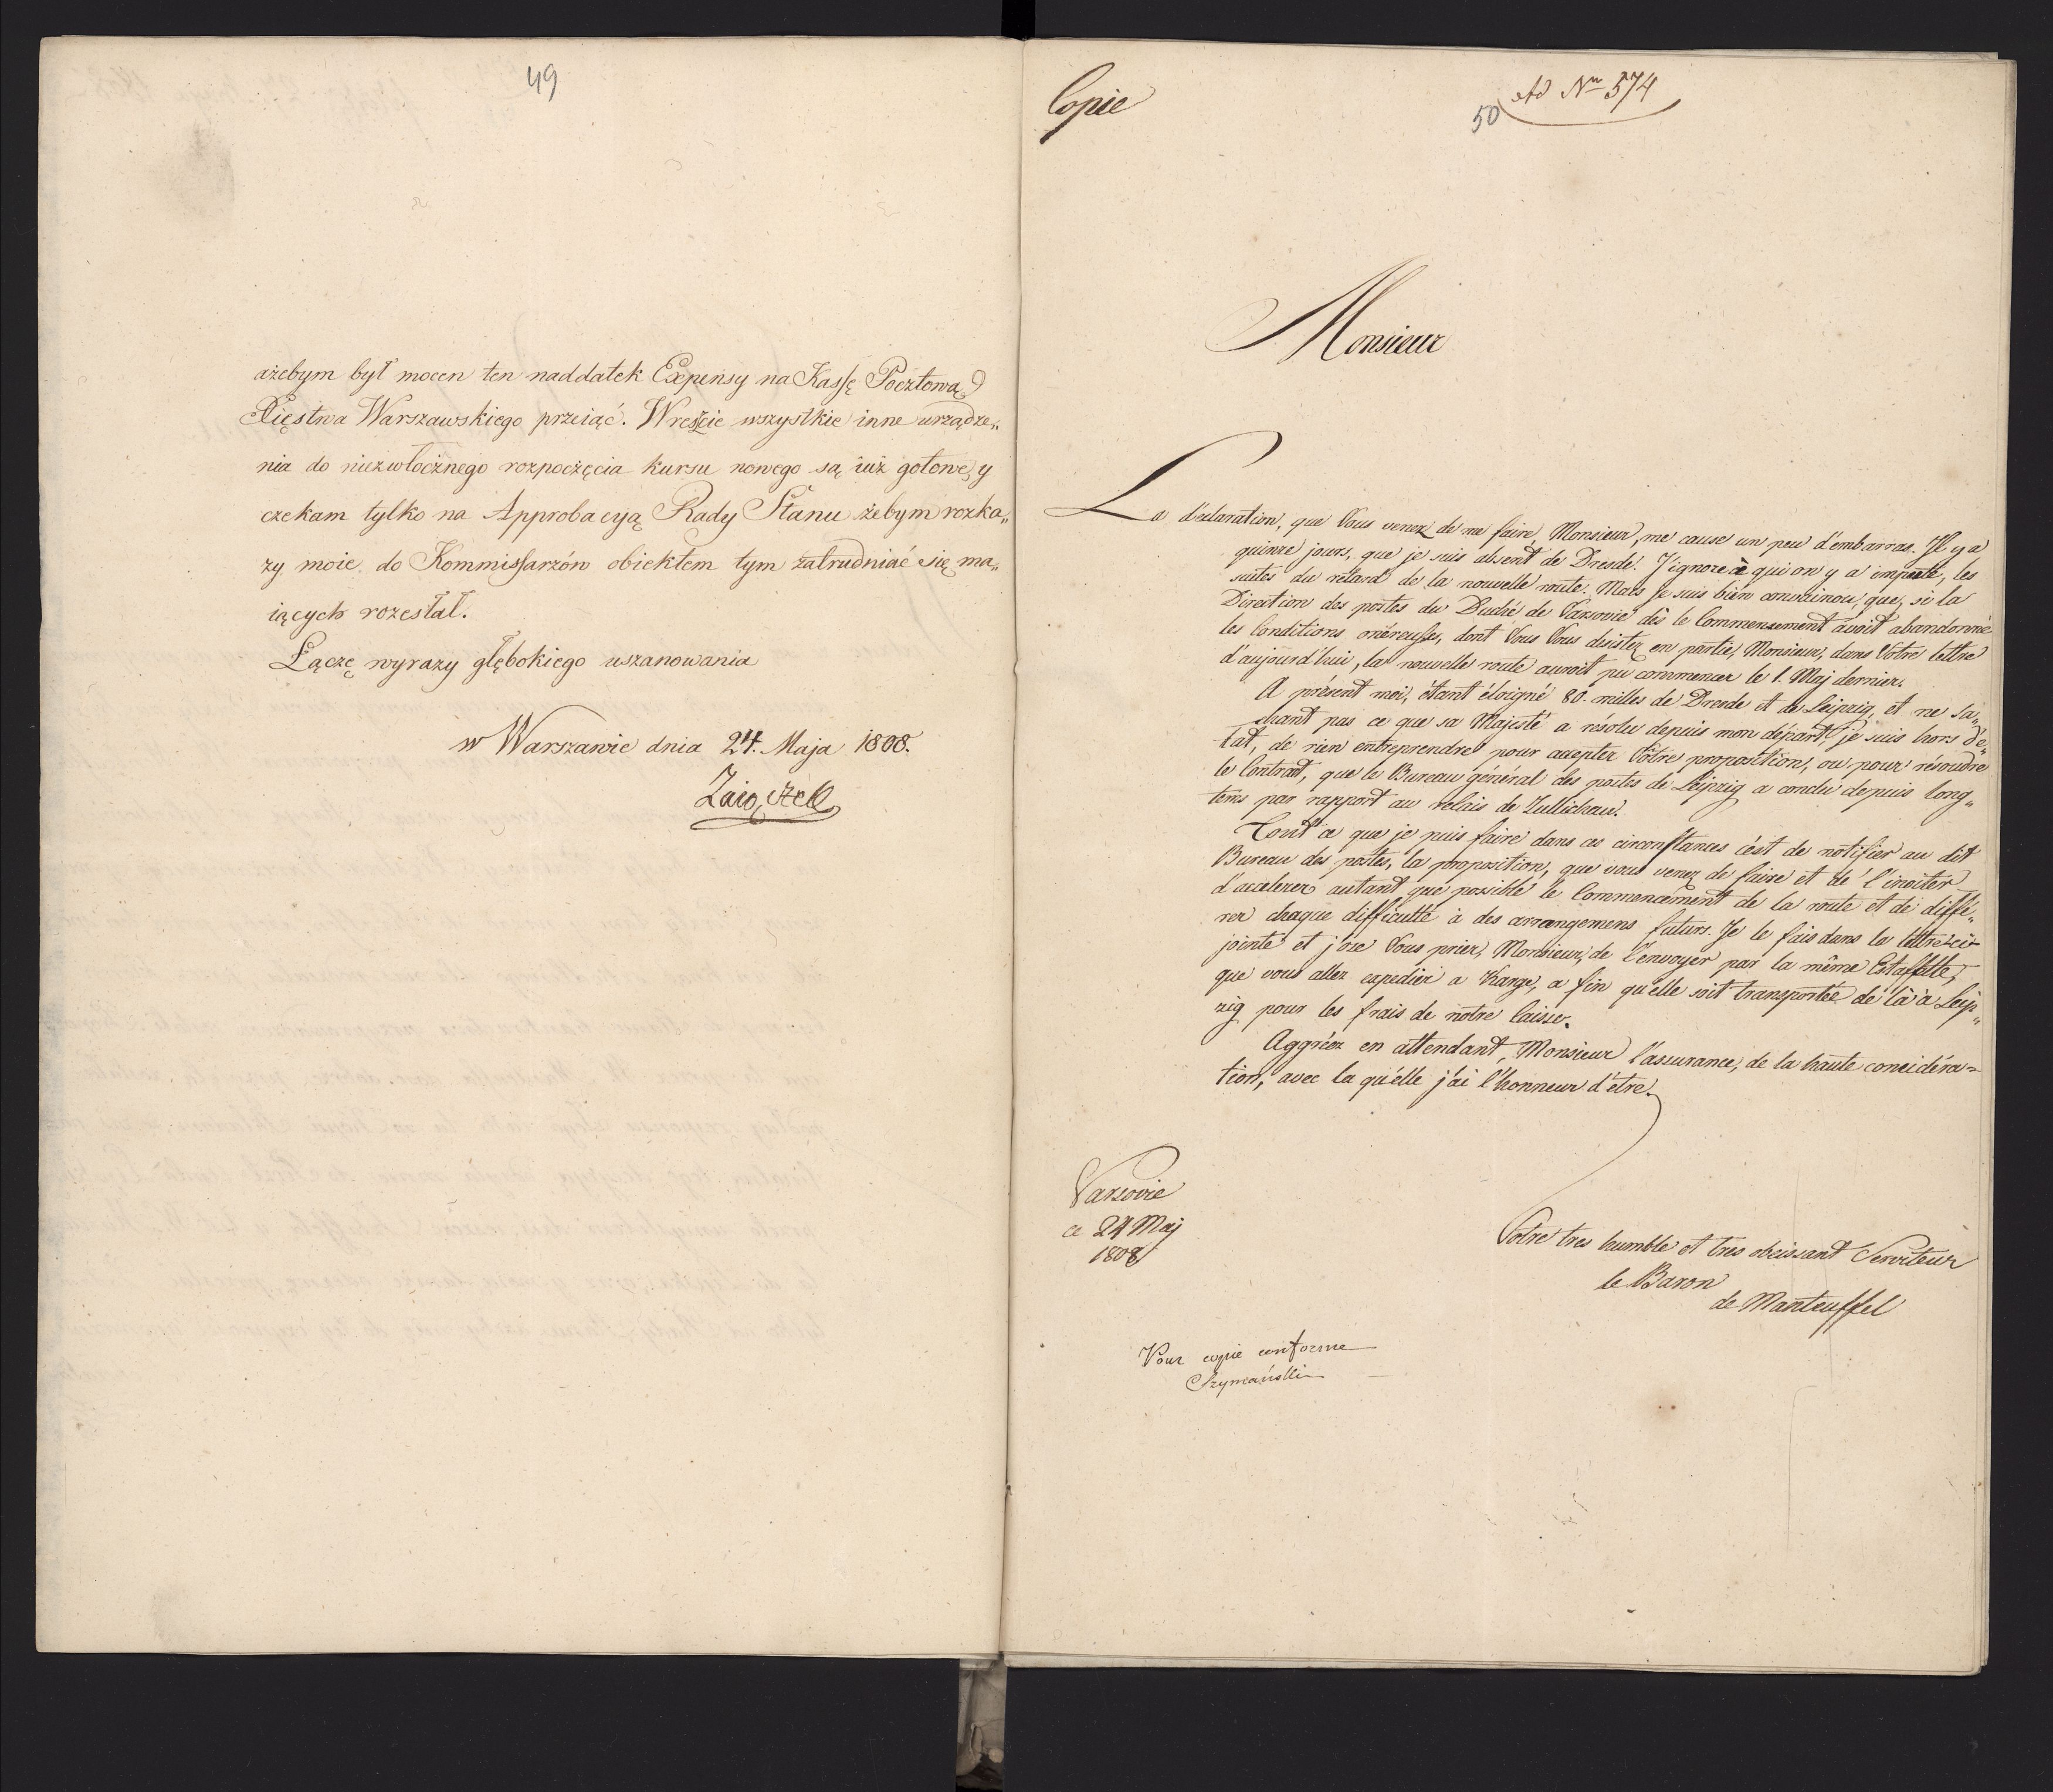 49
ażebym był mocen ten naddatek Expensy na Kassę Pocztową
Xięstwa Warszawskiego przeiąć. Wreszcie wszystkie inne urządze„
nia do niezwłocznego rozpoczęcia kursu nowego są iuż gotowe, y
czekam tylko na Approbacyą Rady Stanu żebym rozka„
zy moie do Kommissarzów obiektem tym zatrudniać się ma„
iących rozesłał.
Łączę wyrazy głębokiego uszanowania
w Warszawie dnia 24. Maja 1808.
Zaiączek
Copie
Ad Nrn 574
50
Monsieur
La déclaration, que Vous venez de me faire, Monsieur, me cause un peu d'embarras. Il y a
quinze jours, que je suis absent de Dresde. J'ignore à qui on y a impute, les
suites du retard de la nouvelle route. Mais je suis bien convaincu, que, si la
Direction des postes du Duché de Varsovie dès le Commensement avoit abandonné
les Conditions onéreusses, dont Vous Vous desistez en partie, Monsieur, dans Votre lettre
d'aujourd'hui, la nouvelle route auroit pu commencer le 1. Maj dernier.
A présent moi, étant éloigné 80. milles de Dresde et de Leipzig, et ne sa„
chant pas ce que sa Majesté a résolu depuis mon départ, je suis hors d'é„
tat, de rien entreprendre pour accepter Vôtre proposition, ou pour résoudre
le Contract, que le Bureau général des postes de Leipzig a conclu depuis long„
tems par rapport au relais de Zullichau.
Tout ce que je puis faire dans ces circonstances c'est de notifier au dit
Bureau des postes, la proposition, que vous venez de faire et de l'inciter
d'accelerer autant que possible le Commencement de la route et de diffé„
rer chaque difficulté à des arrangemens futurs. Je le fais dans la lettre ci-
jointe et j'ose Vous prier, Monsieur, de l'envoyer par la même Estaffette,
que vous allez expedier a Karge, a fin qu'elle soit transportée de là à Leip„
zig pour les frais de nôtre Caisse.
Aggréez en attendant, Monsieur l'assurance, de la haute considéra=
tion, avec la qu'elle j'ai l'honneur d'être.
Varsovie
ce 24 Maj
1808
Votre tres humble et tres obeissant Serviteur
le Baron
de Manteuffel
Pour copie conforme
Szymański